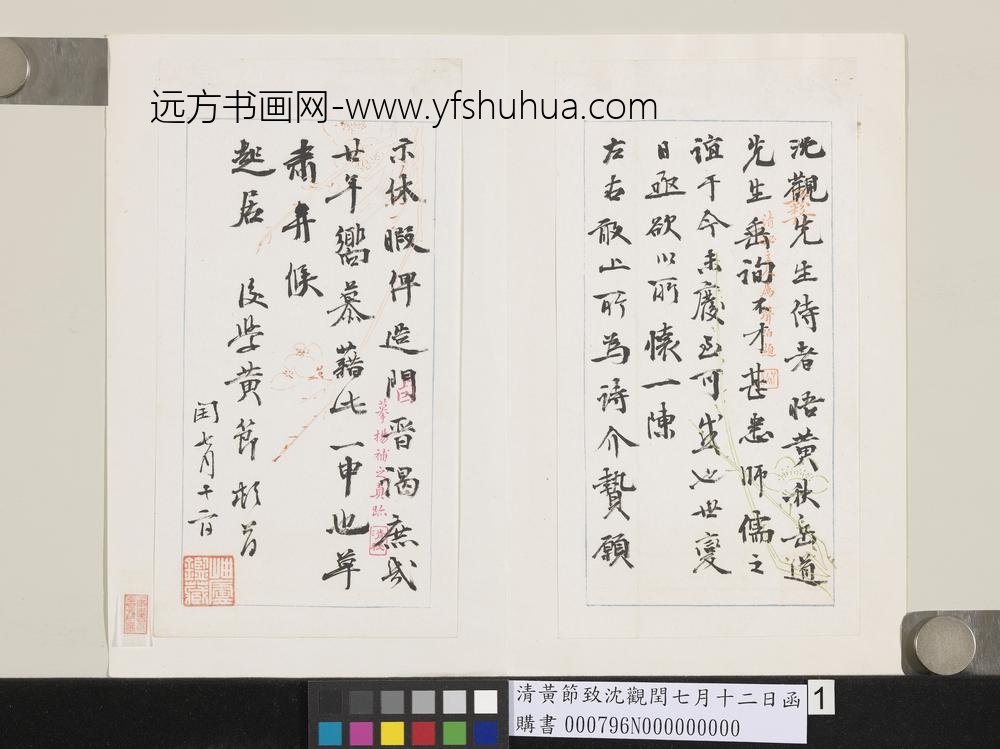 远方书画网-www.yfshuhua.com
沈觀先生侍者晤黄秋岳道
先生垂詢不才甚悉師儒之
誼于今未廢至可感也世變
日亟欲以所懷一陳
左右敢上所為詩介贄願
示休暇俾造門晋謁庶幾
廿年嚮慕藉此一申也草
肅弁候
起居 後學黄節頓首
閏七月十二日
摹楊補之真跡
岫雲鑑藏
清黃節致沈觀閏七月十二日函
購書 000796N000000000
1